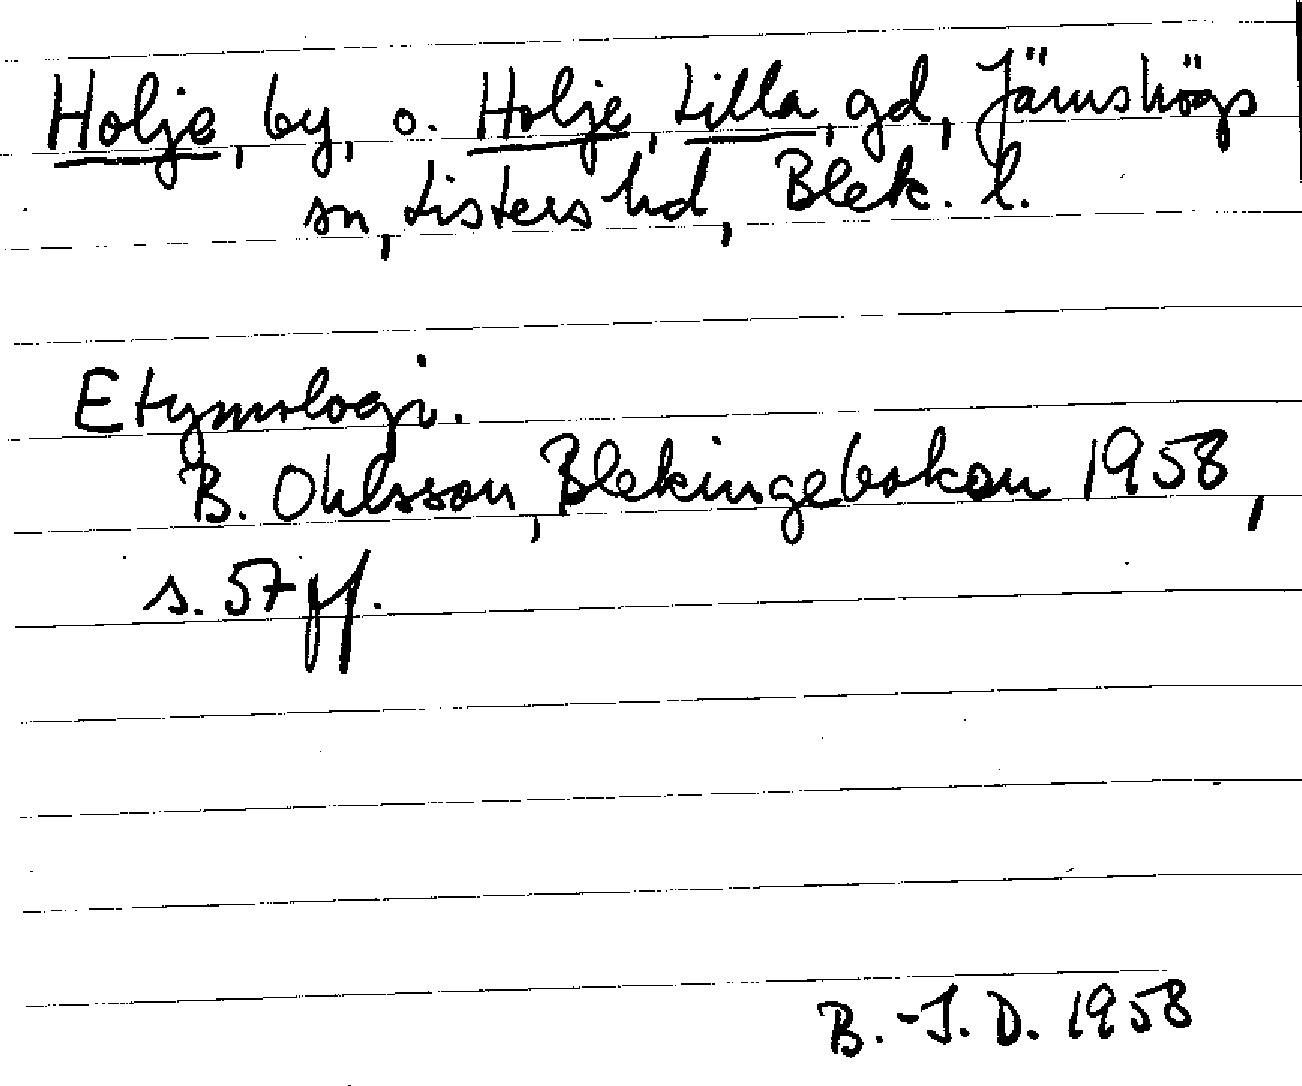 Holje, by, o. Holje, Lilla, gd, Jämshögs
sn, Listers hd, Blek. l.
Etymologi.
B. Ohlsson, Blekingeboken 1958,
s. 57 ff.
B.-J. D. 1958